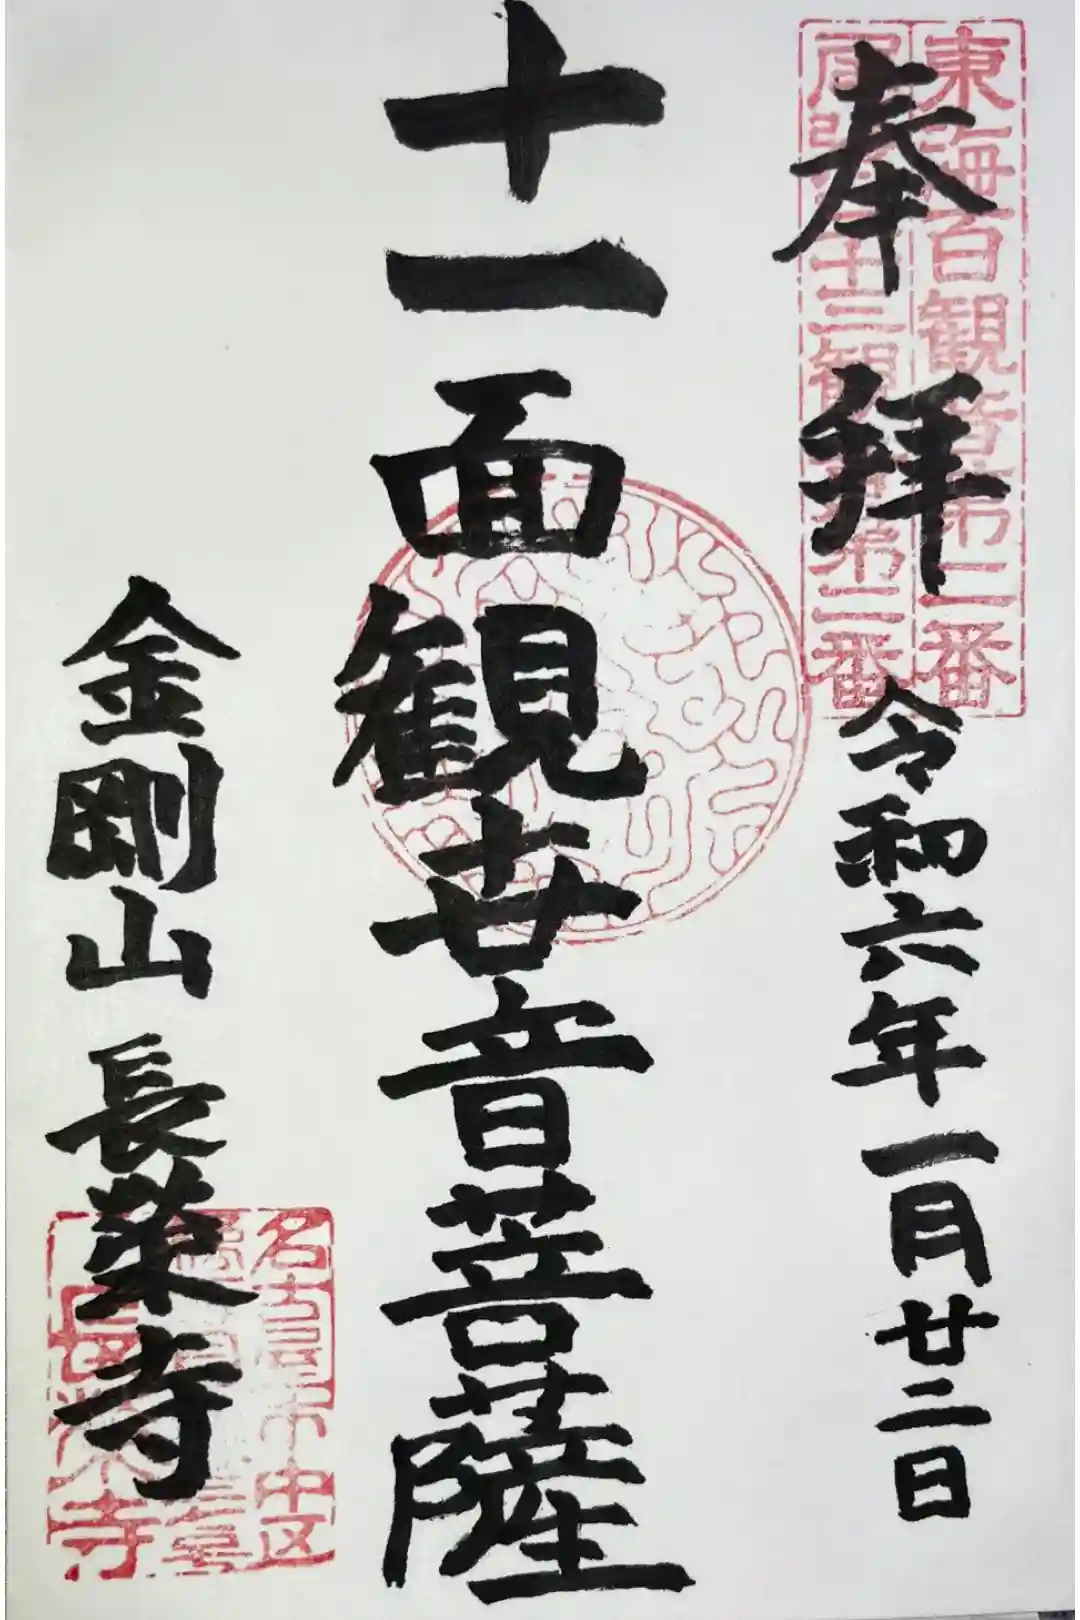 東海百観音第二番
尾張三十三観音第二番
奉拝
令和六年一月廿二日
十一面観世音菩薩
金剛山 長榮寺
名古屋市中区
長榮寺